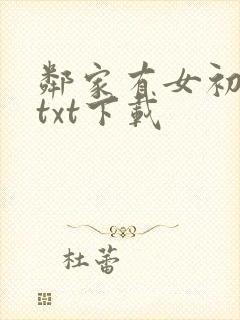 鄰家有女初
txt下載
杜蕾